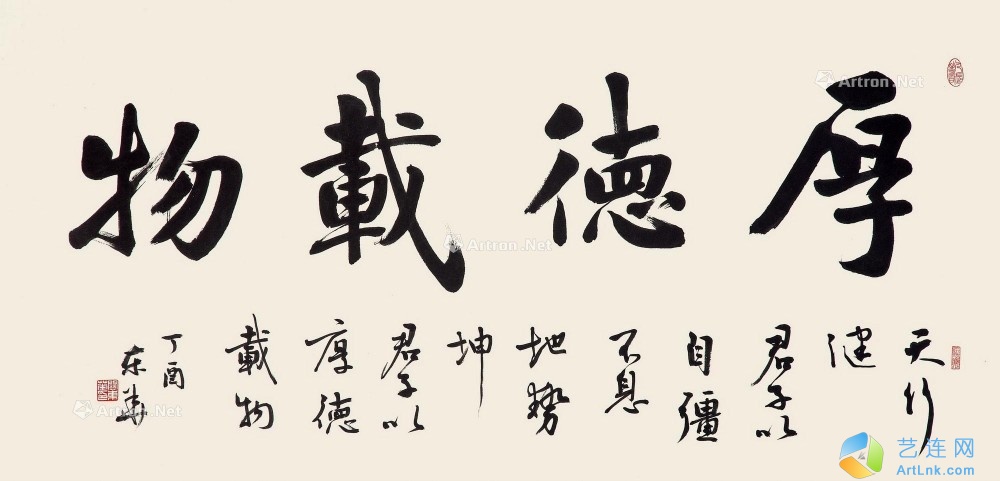 厚德載物
天行
健
君子以
自彊
不息
地勢
坤
君子以
厚德
載物
丁酉
东華
Artron.Net
Artron.Net
Artron.Net
Artron.Net
艺连网
ArtLnk.com